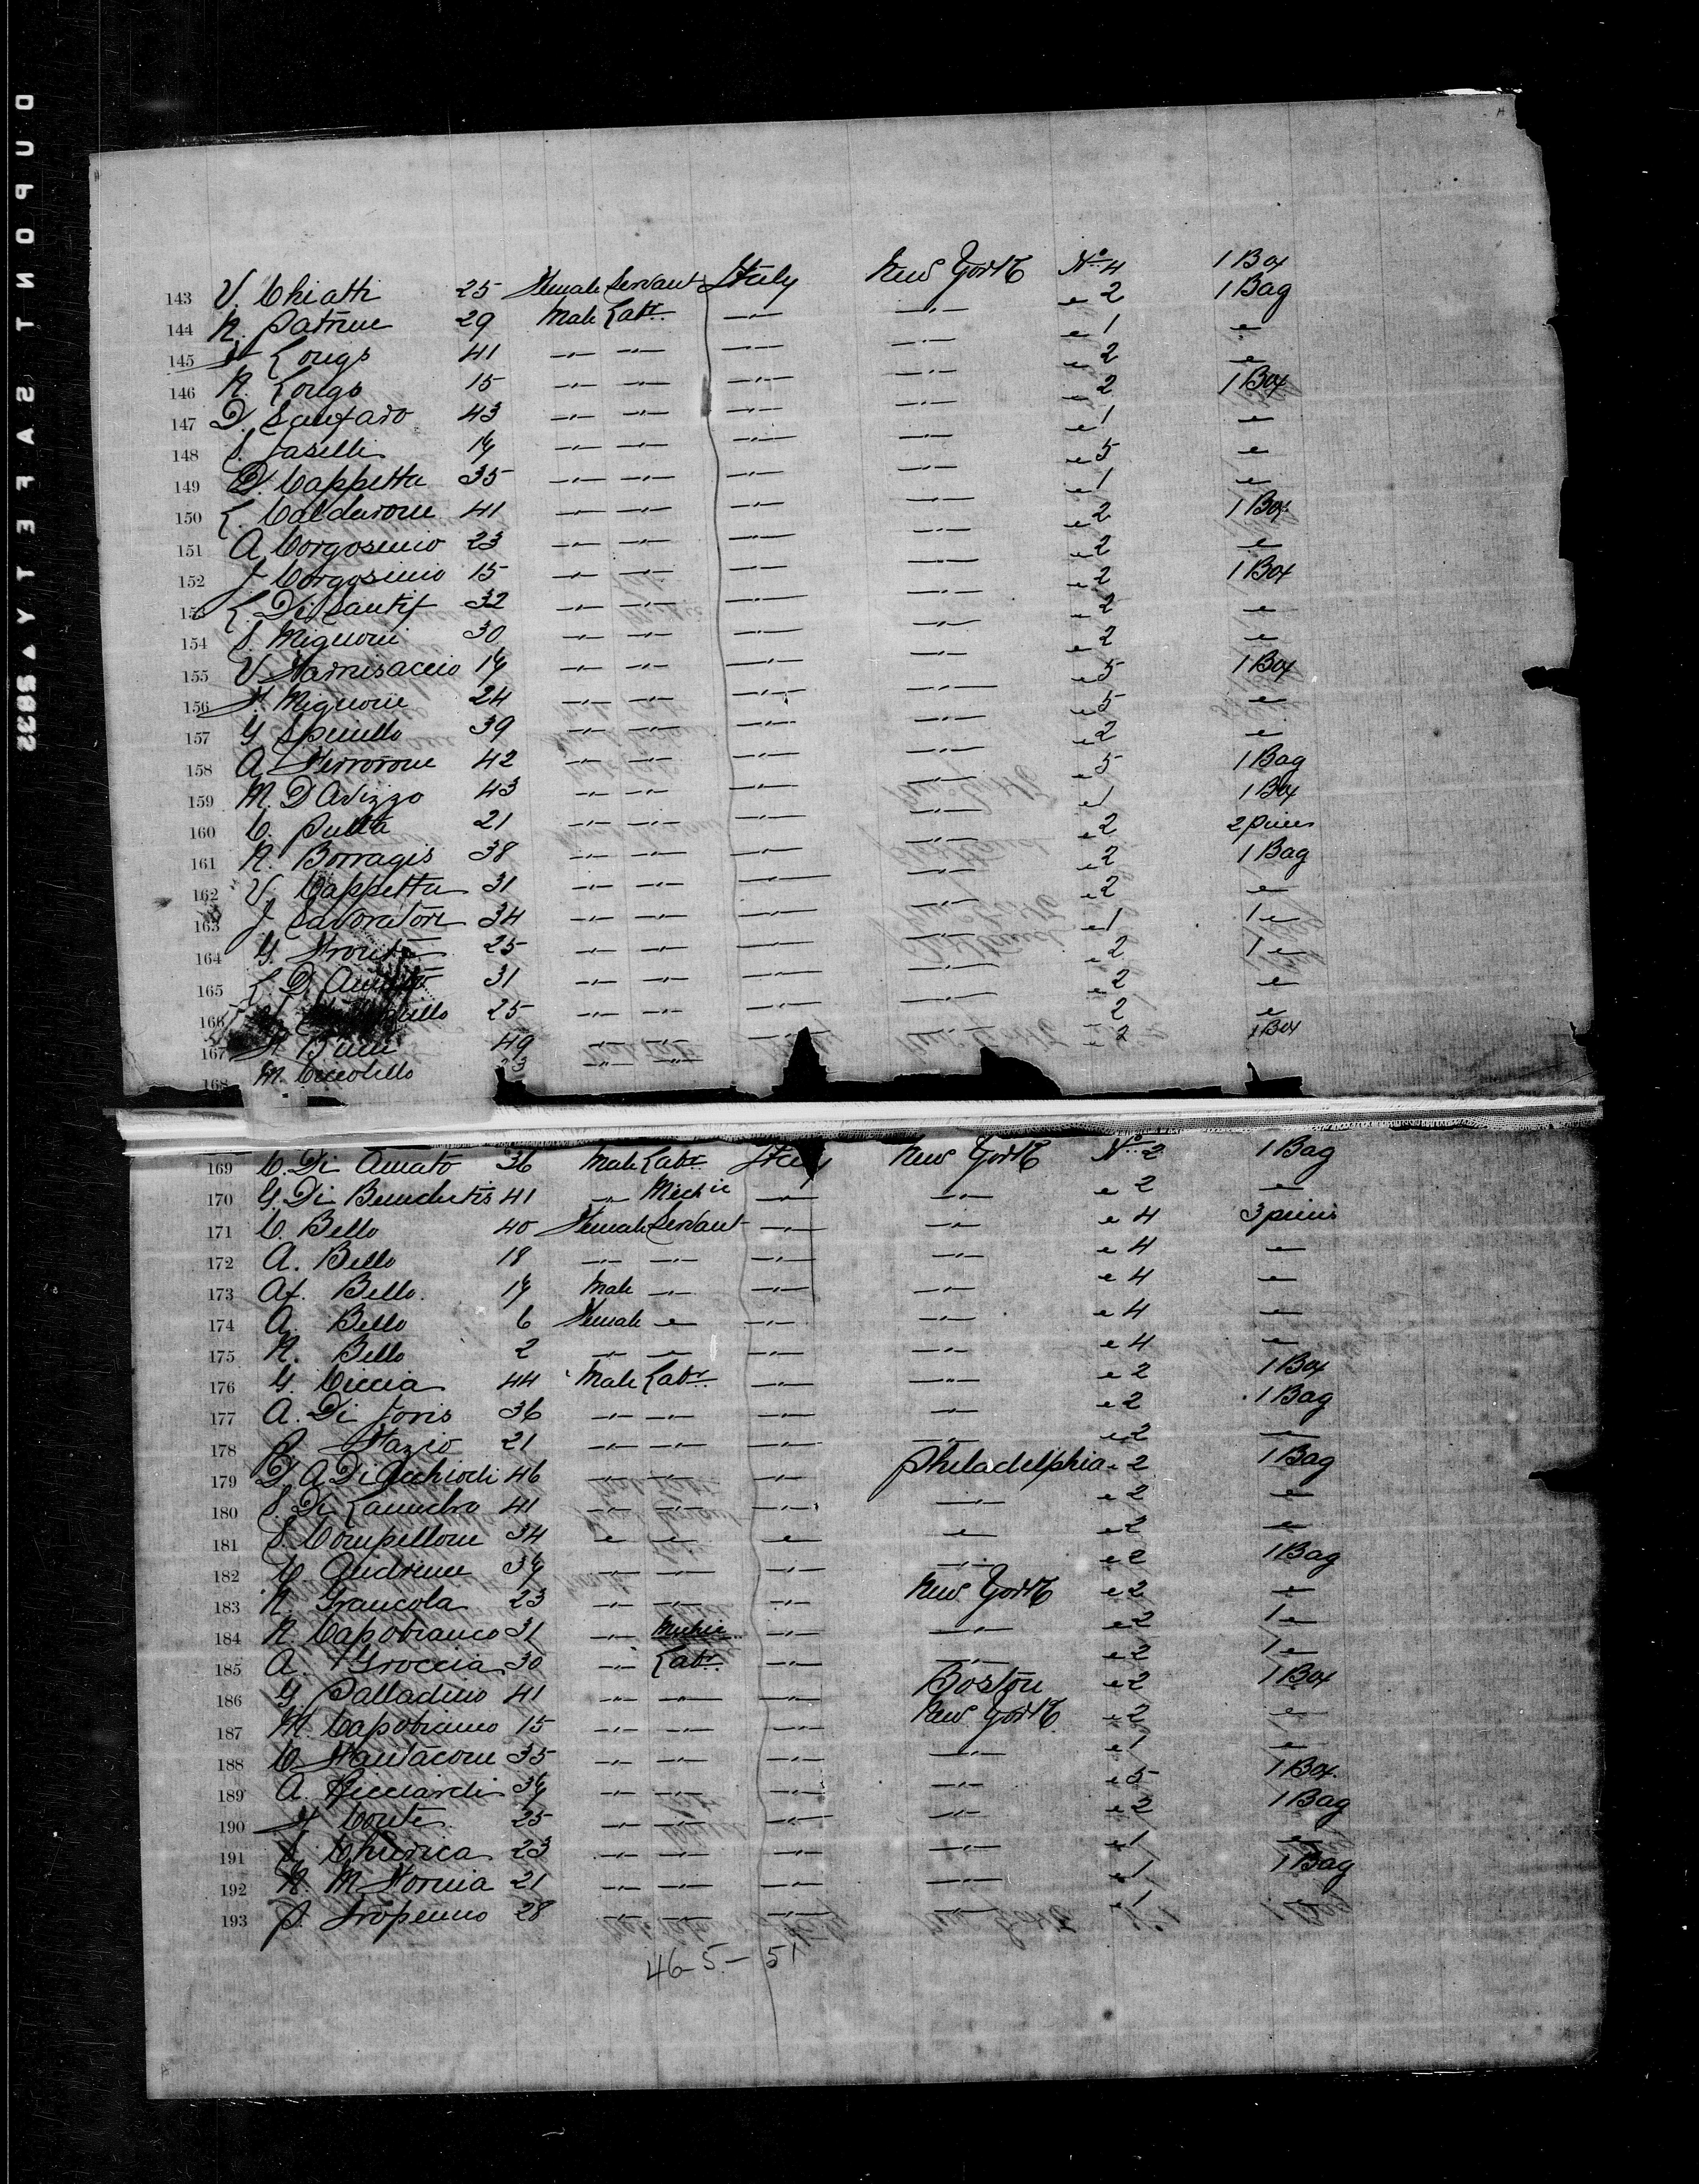 143 V. Chiatti 25 Female Servant Italy New York No 4 1 Box
144 N. Patrine 29 Male Labr. —"— —"— " 2 1 Bag
145 F Longo 41 —"— —"— —"— —"— " 1 "
146 N. Longo 15 —"— —"— —"— —"— " 2 "
147 D. Santaro 43 —"— —"— —"— —"— " 2 1 Box
148 S. Jaselli 14 —"— —"— —"— —"— " 1 "
149 D. Cappetta 35 —"— —"— —"— —"— " 5 "
150 L. Calderone 41 —"— —"— —"— —"— " 1 "
151 A Corgosinio 23 —"— —"— —"— —"— " 2 1 Box
152 J. Corgosinio 15 —"— —"— —"— —"— " 2 "
153 L. Di Santis 32 —"— —"— —"— —"— " 2 1 Box
154 S. Mignoni 30 —"— —"— —"— —"— " 2 "
155 V Farnisaccio 14 —"— —"— —"— —"— " 2 "
156 F. Mignone 24 —"— —"— —"— —"— " 5 1 Box
157 G Spinillo 39 —"— —"— —"— —"— " 5 "
158 A Ferrorone 42 —"— —"— —"— —"— " 2 "
159 M. D'Avizzo 43 —"— —"— —"— —"— " 5 1 Bag
160 C. Pulla 21 —"— —"— —"— —"— " 1 1 Box
161 N. Borragis 38 —"— —"— —"— —"— " 2 2 pieces
162 V. Cappetta 31 —"— —"— —"— —"— " 2 1 Bag
163 J Lavoratore 34 —"— —"— —"— —"— " 2 "
164 G. 25 —"— —"— —"— —"— " 1 1 "
165 L D. 31 —"— —"— —"— —"— " 2 1 "
166 25 —"— —"— —"— —"— " 2 "
167 49 —"— —"— 2 "
168 M. Ciccolillo 23 —"— —"— " 2 1 Box
169 C. Di Amato 36 Male Labr. Italy New York No 2 1 Bag
170 G. Di Benedictis 41 —"— Mechic —"— —"— " 2 "
171 C. Bello 40 Female Servant —"— —"— " 4 3 pieces
172 A. Bello 18 —"— —"— —"— —"— " 4 "
173 Af. Bello. 14 Male —"— —"— —"— " 4 "
174 A. Bello 6 Female " —"— —"— " 4 "
175 N. Bello 2 —"— " —"— —"— " 4 "
176 G. Ciccia 44 Male Labr. —"— —"— " 2 1 Box
177 A. Di Joris 36 —"— —"— —"— —"— " 2 1 Bag
178 P. Fazio 21 —"— —"— —"— —"— " 2 "
179 D. A Di Acchioli 46 —"— —"— —"— Philadelphia " 2 1 Bag
180 S. Di 41 —"— —"— —"— —"— " 2 "
181 S. Compellone 34 " " " " " 2 "
182 C. Andriene 34 —"— —"— —"— —"— " 2 1 Bag
183 N. Grancola 23 —"— —"— —"— New York " 2 "
184 N. Capobianco 31 —"— Mechic —"— —"— " 2 1 "
185 A. Groccia 30 —"— Labr. —"— —"— " 2 1 "
186 G. Palladino 41 —"— —"— —"— Boston " 2 1 Box
187 N. Capobianco 15 —"— —"— —"— New York " 2 "
188 C Fantacone 35 —"— —"— —"— —"— " 1 "
189 A. Ricciardi 34 —"— —"— —"— —"— " 5 1 Box
190 F Conte 25 —"— —"— —"— —"— " 2 1 Bag
191 Chierica 23 —"— —"— —"— —"— " 1 "
192 N. M Fornia 21 —"— —"— —"— —"— " 1 1 Bag
193 P. Tropenno 28 —"— —"— —"— —"— " 1 "
46-5- 51
DUPONT SAFETY 5835